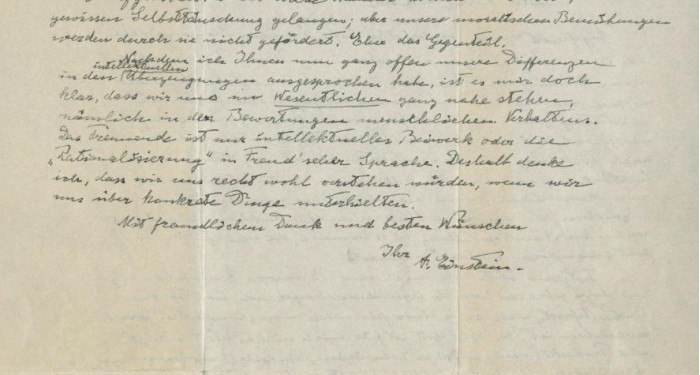 gewissen Selbsttäuschung gelangen; aber unsere moralischen Bemühungen
werden durch sie nicht gefördert. Eher das Gegenteil.
Nachdem ich Ihnen nun ganz offen unsere Differenzen
intellektuellen
in den Überzeugungen ausgesprochen habe, ist es mir doch
klar, dass wir uns im Wesentlichen ganz nahe stehen,
nämlich in den Bewertungen menschlichen Verhaltens.
Das Trennende ist nur intellektuelles Beiwerk oder die
„Rationalisierung" in Freud'scher Sprache. Deshalb denke
ich, dass wir uns recht wohl verstehen würden, wenn wir
uns über konkrete Dinge unterhielten.
Mit freundlichem Dank und besten Wünschen
Ihr
A. Einstein.